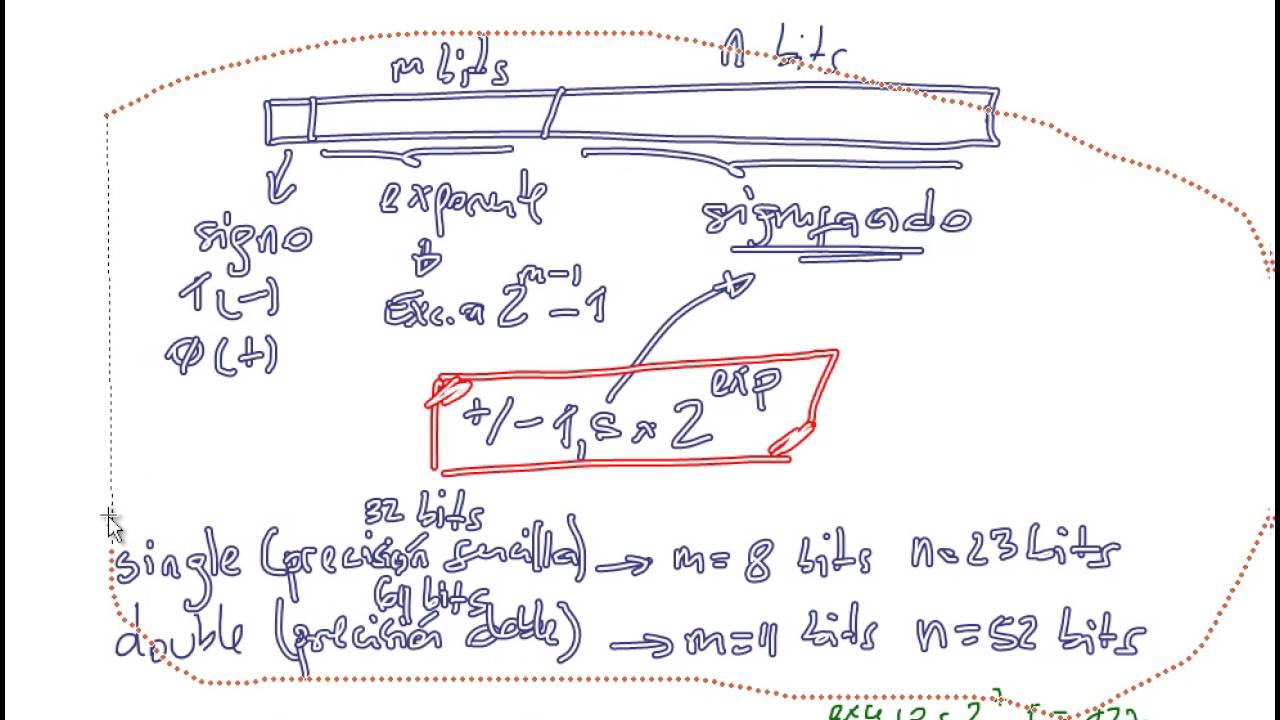 m bits n bits
exponente significando
signo
1 (-) Exc. a 2^{m-1} - 1
φ (+)
+/- 1,S x 2^{exp}
32 bits
single (precisión sencilla) → m = 8 bits n = 23 bits
64 bits
double (precisión doble) → m = 11 bits n = 52 bits